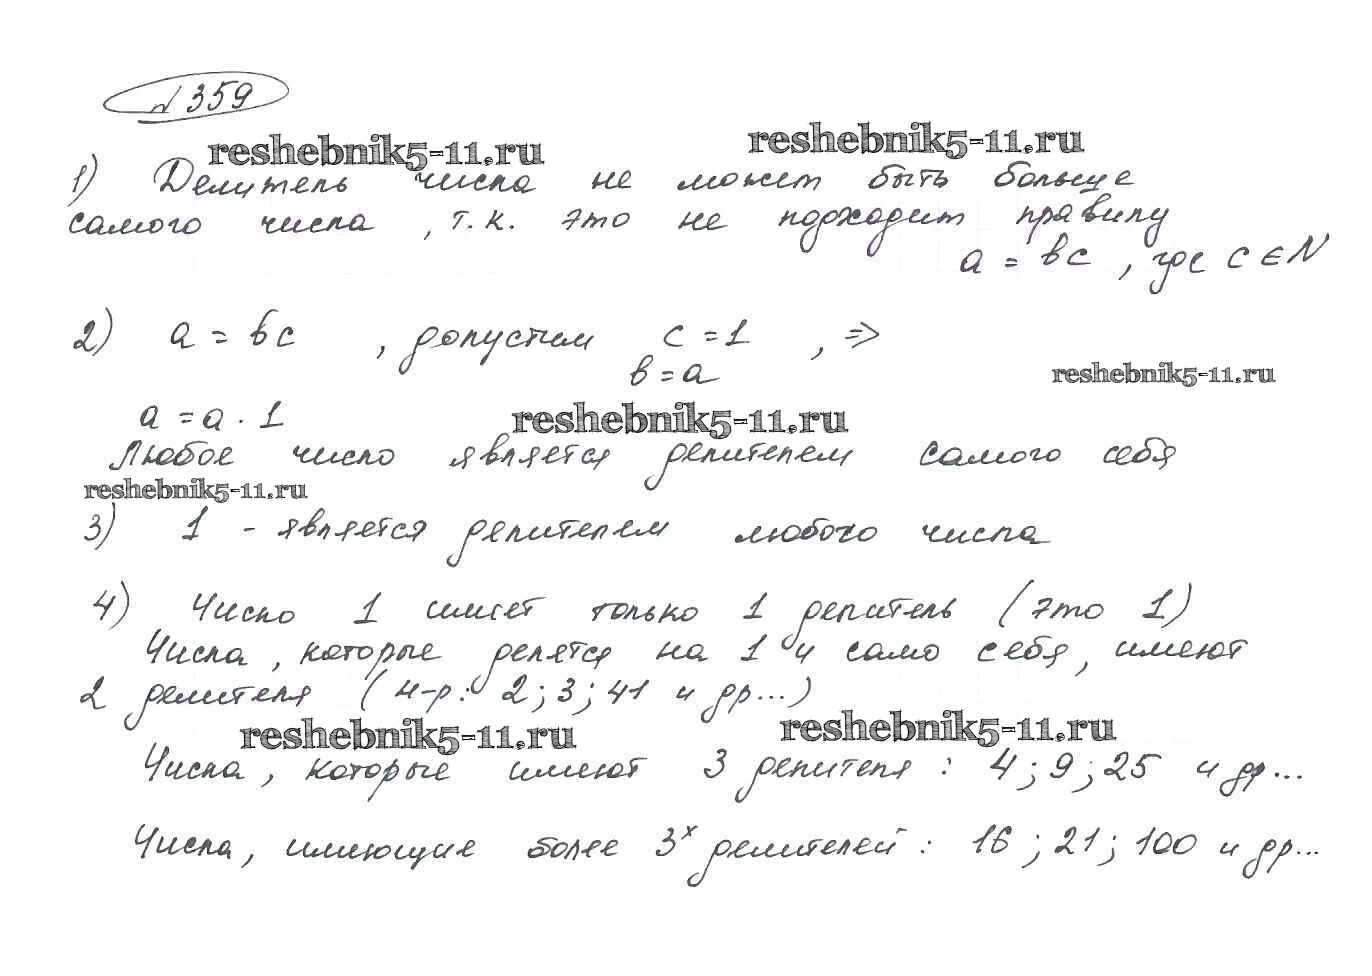 №359
reshebnik5-11.ru reshebnik5-11.ru
1) Делитель числа не может быть больше
самого числа, т.к. это не подходит правилу
a = bc, где c ∈ N
2) a = bc, допустим c = 1, ⇒
b = a
reshebnik5-11.ru
a = a · 1 reshebnik5-11.ru
Любое число является делителем самого себя
reshebnik5-11.ru
3) 1 - является делителем любого числа
4) Число 1 имеет только 1 делитель (это 1)
Числа, которые делятся на 1 и само себя, имеют
2 делителя (н-р: 2; 3; 41 и др...)
reshebnik5-11.ru reshebnik5-11.ru
Числа, которые имеют 3 делителя: 4; 9; 25 и др...
Числа, имеющие более 3х делителей: 16; 21; 100 и др...